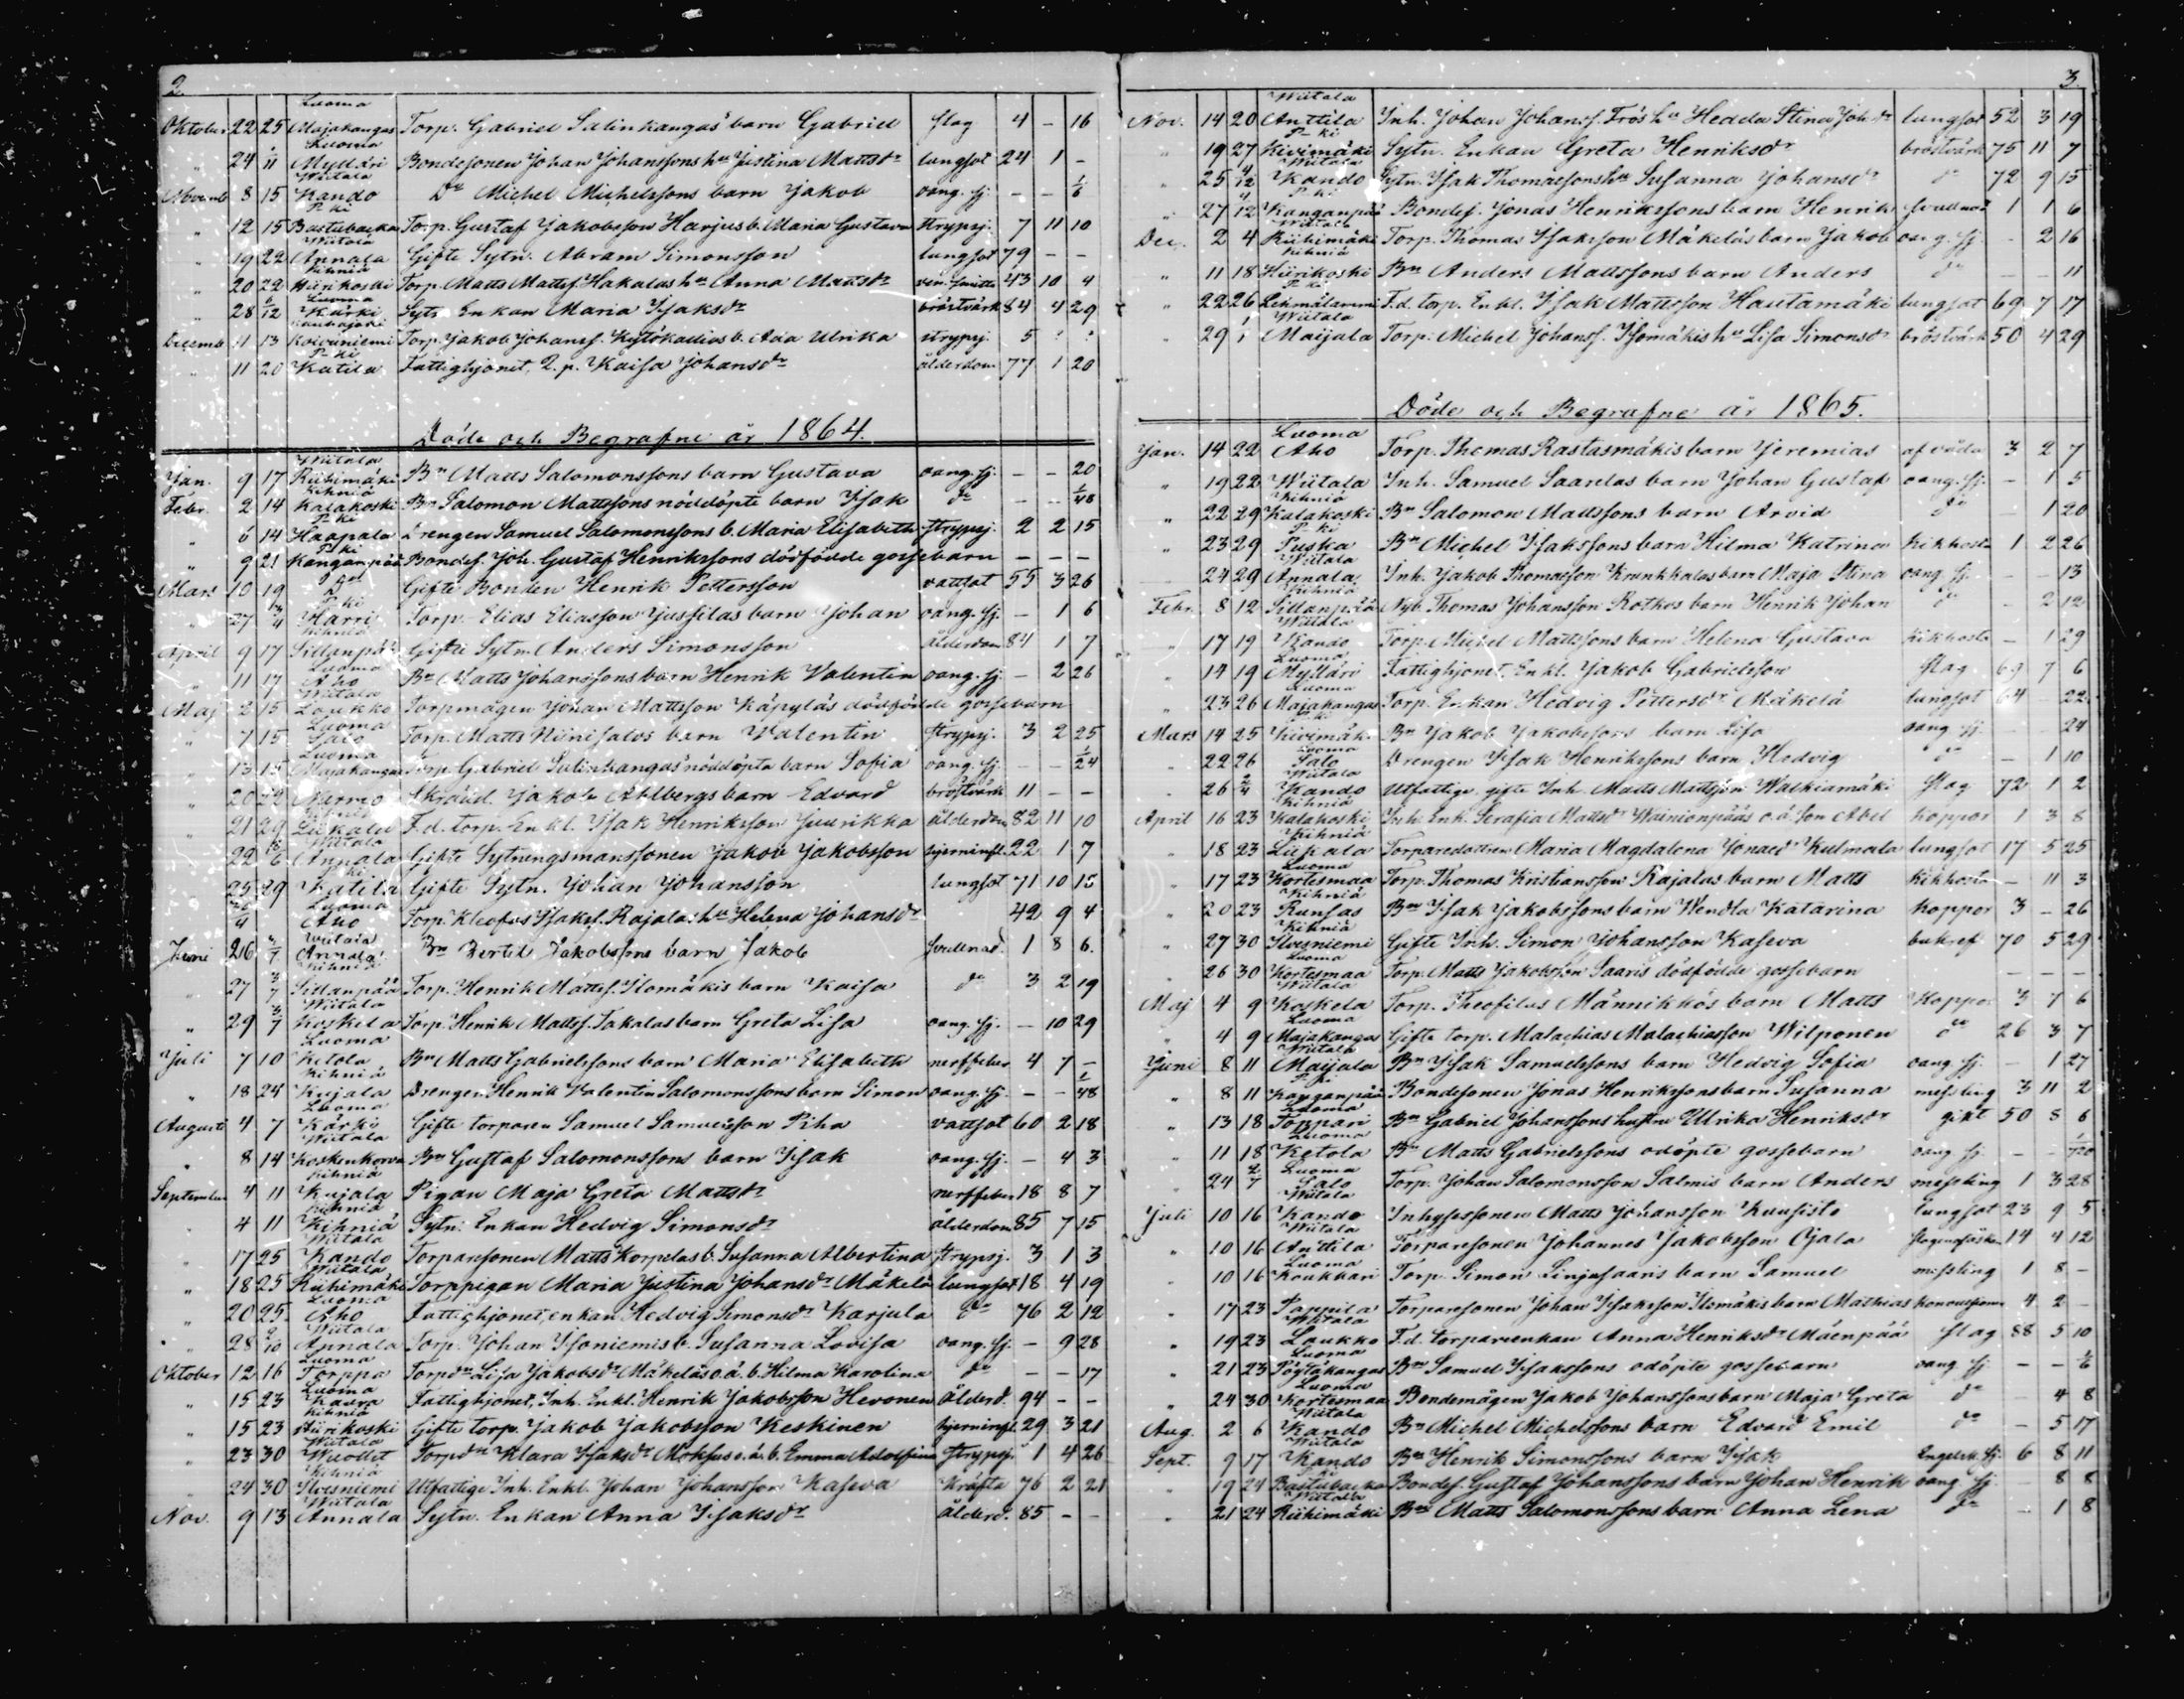 2
Luoma
Oktober 22 25 Majakangas Torp. Gabriel Salinkangas' barn Gabriel slag 4 - 16
Luoma
" 24 1/11 Mylläri Bondesonen Johan Johanssons hu Justina Mattsdr lungsot 24 1 -
Wiitala
Novemb 8 15 Kando Dn Michel Michelssons barn Jakob oang. sj. - - 1/6
P-ki
" 12 15 Bastubacka Torp. Gustaf Jakobsson Harjus b. Maria Gustava strypsj. 7 11 10
Wiitala
" 19 22 Annala Gifte Sytn. Abram Simonsson lungsot 79 - -
Kihniä
" 20 22 Hiirikoski Torp. Matts Mattss. Hakalas hu Anna Mattsdr ven. smitta 43 10 4
Luoma
" 28 6/12 Kärki Syts Enkan Maria Isaksdr bröstvärk 84 4 29
Kauhajoki
Decemb 11 13 Koivuniemi Torp. Jakob Johanss. Kytökallios b. Ava Ulrika strypsj. 5 ? ?
P-ki
" 11 20 Katila Fattighjonet, Q. p. Kaisa Johansdr ålderdom 77 1 20
Döde och Begrafne år 1864.
Wiitala
Jan. 9 17 Riihimäki Bn Matts Salomonssons barn Gustava oang. sj. - - 20
Kihniä
Febr. 2 14 Kalakoski Bn Salomon Mattssons nöddöpte barn Isak do - - 1/48
P-ki
" 6 14 Haapala Drengen Samuel Salomonssons b. Maria Elisabeth strypsj. 2 2 15
P-ki
" 9 21 Kanganpää Bondes. Joh. Gustaf Henrikssons dödfödde gossebarn - - -
Mars 10 19 Do Gifte Bonden Henrik Pettersson vattsot 55 3 26
P-ki
" 27 3/4 Harri Torp. Elias Eliasson Jussilas barn Johan oang. sj. - 1 6
Kihniä
April 9 17 Sillanpää Gifte Sytn. Anders Simonsson ålderdom 84 1 7
Luoma
" 11 17 Aho Bn Matts Johanssons barn Henrik Valentin oang. sj. - 2 26
Wiitala
Maj 2 15 Laukko Torpmågen Johan Mattsson Käpyläs dödfödde gossebarn
Luoma
" 7 15 Salo Torp. Matts Niinisalos barn Valentin strypsj. 3 2 25
Luoma
" 13 15 Majakangas Torp. Gabriel Salinkangas' nöddöpta barn Sofia oang. sj. - - 1/24
" 20 22 Nirmo Skrädd. Jakob Ahlbergs barn Edvard bröstvärk 11 - -
Kihniä
" 21 29 Luhala F.d. torp. Enkl. Isak Henriksson Juurikka ålderdom 82 11 10
Wiitala
" 22 Annala Gifte Sytningsmanssonen Jakob Jakobsson hjerninfl. 22 1 7
P-ki
" 25 29 Katila Gifte Sytn. Johan Johansson lungsot 71 10 15
Luoma
Aho Torp. Kleofas Isakss. Rajalas hu Helena Johansdr 42 9 4
Wiitala
Juni 26 3/7 Annala Bn Bertil Jakobssons barn Jakob svullnad. 1 8 6.
Kihniä
" 27 3/7 Sillanpää Torp. Henrik Mattss. Ilomäkis barn Kaisa do 3 2 19
Wiitala
" 29 3/7 Koskela Torp. Henrik Mattss. Takalas barn Greta Lisa oang. sj. - 10 29
Luoma
Juli 7 10 Ketola Bn Matts Gabrielssons barn Maria Elisabeth nerffeber 4 7 -
Kihniä
" 18 24 Kujala Drengen Henrik Valentin Salomonssons barn Simon oang. sj. - - 1/48
Luoma
Augusti 4 7 Kärki Gifte torparen Samuel Samuelsson Piha vattsot 60 2 18
Wiitala
" 8 14 Koskenkorva Bn Gustaf Salomonssons barn Isak oang. sj. - 4 3
Kihniä
September 4 11 Kujala Pigan Maja Greta Mattsdr nerffeber 18 8 7
Kihniä
" 4 11 Kihniä Sytn: Enkan Hedvig Simonsdr ålderdom 85 7 15
Wiitala
" 17 25 Kando Torparesonen Matts Korpelas b. Susanna Albertina strypsj. 3 1 3
Wiitala
" 18 25 Riihimäki Torppigan Maria Justina Johansdr Mäkelä lungsot 18 4 19
Luoma
" 20 25. Aho Fattighjonet, enkan Hedvig Simonsdr Karjula do 76 2 12
Wiitala
" 28 2/10 Annala Torp. Johan Isoniemis b. Susanna Lovisa oang. sj. - 9 28
Luoma
Oktober 12 16 Torppa Torpdn Lisa Jakobsdr Mäkeläs o.ä. b. Hilma Karolina do - - 17
Luoma
" 15 23 Kaura Fattighjonet, Inh. Enkl. Henrik Jakobsson Hevonen ålderd. 94 - -
Kihniä
" 15 23 Hiirikoski Gifte torp. Jakob Jakobsson Keskinen hjerninfl. 29 3 21
Wiitala
" 23 30 Torpdn Klara Isaksdr o. ä. b. Emma Adolfina strypsj. 1 4 26
Kihniä
" 24 30 Ilvesniemi Utfattige Inh. Enkl. Johan Johansson Kaseva Kräfta 76 2 21
Wiitala
Nov. 9 13 Annala Sytn. Enkan Anna Isaksdr ålderd. 85 - -
3.
Wiitala
Nov. 14 20 Anttila Inh. Johan Johanss. Frös hu Hedda Stina Johdr lungsot 52 3 19
P-ki
" 19 27 Kivimäki Sytn. Enkan Greta Henriksdr bröstvärk 75 11 7
Wiitala
" 25 4/12 Kando Sytn. Isak Thomassons hu Susanna Johansdr do 72 9 15
P-ki
" 27 4/12 Kanganpää Bondes. Jonas Henrikssons barn Henrik svullnad 1 1 6
Wiitala
Dec. 2 4 Riihimäki Torp. Thomas Isaksson Mäkeläs barn Jakob oang. sj. - 2 16
Kihniä
" 11 18 Hiirikoski Bn Anders Mattssons barn Anders do - - 11
P-ki
" 22 26 F.d. torp. Enkl. Isak Mattsson Hautamäki lungsot 69 7 17
Wiitala
" 29 1/1 Maijala Torp. Michel Johanss. Isomäkis hu Lisa Simonsdr bröstvärk 50 4 29
Döde och Begrafne år 1865.
Luoma
Jan. 14 22 Aho Torp. Thomas Rastasmäkis barn Jeremias af våda 3 2 7
" 19 22 Wiitala Inh. Samuel Saarelas barn Johan Gustaf oang. sj. - 1 5
Kihniä
" 22 29 Kalakoski Bn Salomon Mattssons barn Arvid do - 1 20
P-ki
" 23 29 Puska Bn Michel Isakssons barn Hilma Katrina kikhosta 1 2 26
Wiitala
24 29 Annala Inh. Jakob Thomasson Krunkkalas barn Maja Stina oang. sj. - - 13
Kihniä
Febr. 8 12 Sillanpää Nyb. Thomas Johansson Rotkos barn Henrik Johan do - 2 12
Wiitala
" 17 19 Kando Torp. Michel Mattssons barn Helena Gustava kikhosta - 1 29
Luoma
" 14 19 Mylläri Fattighjonet, Enkl. Jakob Gabrielsson slag 69 7 6
Luoma
" 23 26 Majakangas Torp. Enkan Hedvig Pettersdr Mäkelä lungsot 64 - 22
P-ki
Mars 14 25 Kivimäk. Bn Jakob Jakobssons barn Lisa oang sj. - - 24
Luoma
" 22 26 Salo Drengen Isak Henrikssons barn Hedvig do - 1 10
Wiitala
" 26 2/4 Kando Utfattige, gifte Inh. Matts Mattsson Walkiamäki slag 72 1 2
Kihniä
April 16 23 Kalakoski Inh. Enk. Serafia Mattsdr Wainionpääs o.ä. son Abel koppor 1 3 8
Kihniä
" 18 23 Luhala Torparedottren Maria Magdalena Jonasdr Kulmala lungsot 17 5 25
Luoma
" 17 23 Kortesmaa Torp. Thomas Kristiansson Rajalas barn Matts kikhosta - 11 3
Kihniä
" 20 23 Runsas Bn Isak Jakobssons barn Wendla Katarina koppor 3 - 26
Kihniä
" 27 30 Ilvesniemi Gifte Inh. Simon Johansson Kaseva bukref 70 5 29
Luoma
" 26 30 Kortesmaa Torp. Matts Jakobsson Saaris dödfödde gossebarn - - -
Wiitala
Maj 4 9 Koskela Torp. Theofilus Männikkös barn Matts Koppor 3 7 6
Luoma
" 4 9 Majakangas Gifte torp. Malachias Malachiasson Wilponen do 26 3 7
Wiitala
Juni 8 11 Maijala Bn Isak Samuelssons barn Hedvig Sofia oang sj. - 1 27
P-ki
" 8 11 Kanganpää Bondesonen Jonas Henrikssons barn Susanna messling 3 11 2
Luoma
" 13 18 Toppari Bn Gabriel Johanssons hustru Ulrika Henriksdr gikt 50 8 6
Luoma
" 11 18 Ketola Bn Matts Gabrielssons odöpte gossebarn oang sj. - -
Luoma
" 24 2/7 Salo Torp. Johan Salomonsson Salmis barn Anders messling 1 3 28
Wiitala
Juli 10 16 Kando Inhysessonen Matts Johansson Kuusisto lungsot 23 9 5
Wiitala
" 10 16 Anttila Torparesonen Johannes Jakobsson Ojala 14 4 12
Luoma
" 10 16 Koukkari Torp. Simon Linjasaaris barn Samuel messling 1 8 -
" 17 23 Pappila Torparesonen Johan Isaksson Ilomäkis barn Mathias 4 2 -
Wiitala
" 19 23 Laukko F.d. torpareenkan Anna Henriksdr Mäenpää slag 88 5 10
Luoma
" 21 23 Pöytäkangas Bn Samuel Isakssons odöpte gossebarn oang. sj. - - 1/6
Luoma
" 24 30 Kortesmaa Bondemågen Jakob Johanssons barn Maja Greta do 4 8
Wiitala
Aug. 2 6 Kando Bn Michel Michelssons barn Edvard Emil do - 5 17
Wiitala
Sept. 9 17 Kando Bn Henrik Simonssons barn Isak Engelsk. sj. 6 8 11
P-ki
" 19 24 Bastubacka Bondes. Gustaf Johanssons barn Johan Henrik oang sj. 8 8
Wiitala
" 21 24 Riihimäki Bn Matts Salomonssons barn Anna Lena do - 1 8